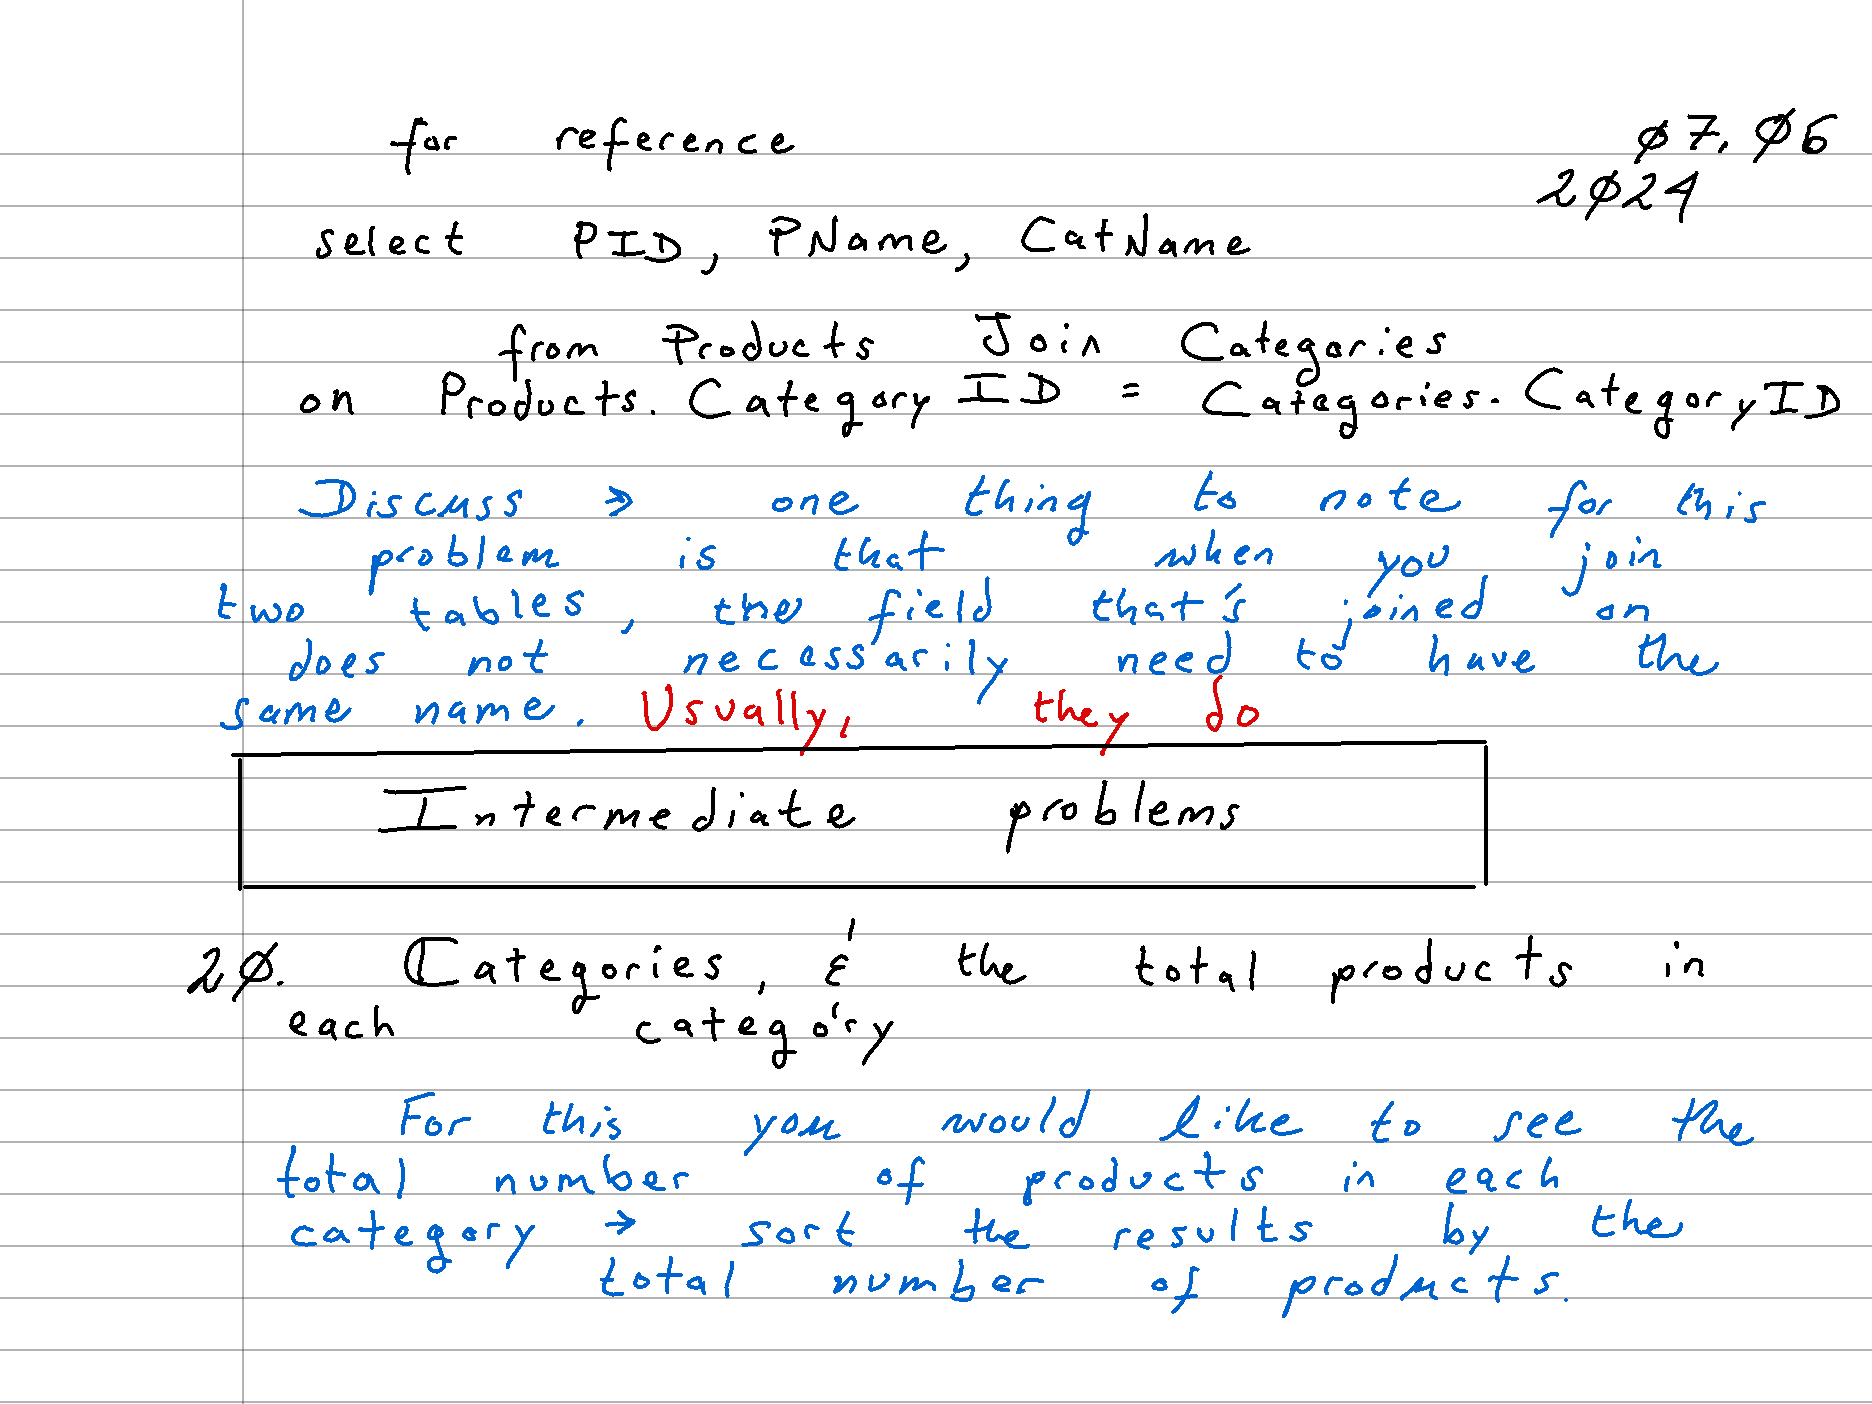 for reference
Ø7, Ø6
2Ø24
select PID, PName, CatName
from Products Join Categories
on Products.CategoryID = Categories.CategoryID
Discuss → one thing to note for this
problem is that when you join
two tables, the field that's joined on
does not necessarily need to have the
same name. Usually, they do
Intermediate problems
2Ø. Categories, & the total products in
each category
For this you would like to see the
total number of products in each
category → sort the results by the
total number of products.